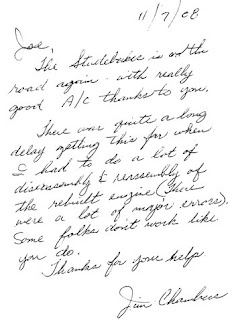 11/7/08
Joe,
The Studebaker is on the
road again - with really
good A/C thanks to you.
There was quite a long
delay getting this far when
I had to do a lot of
disassembly & reassembly of
the rebuilt engine (there
were a lot of major errors).
Some folks don't work like
you do.
Thanks for your help.
Jim Chambers